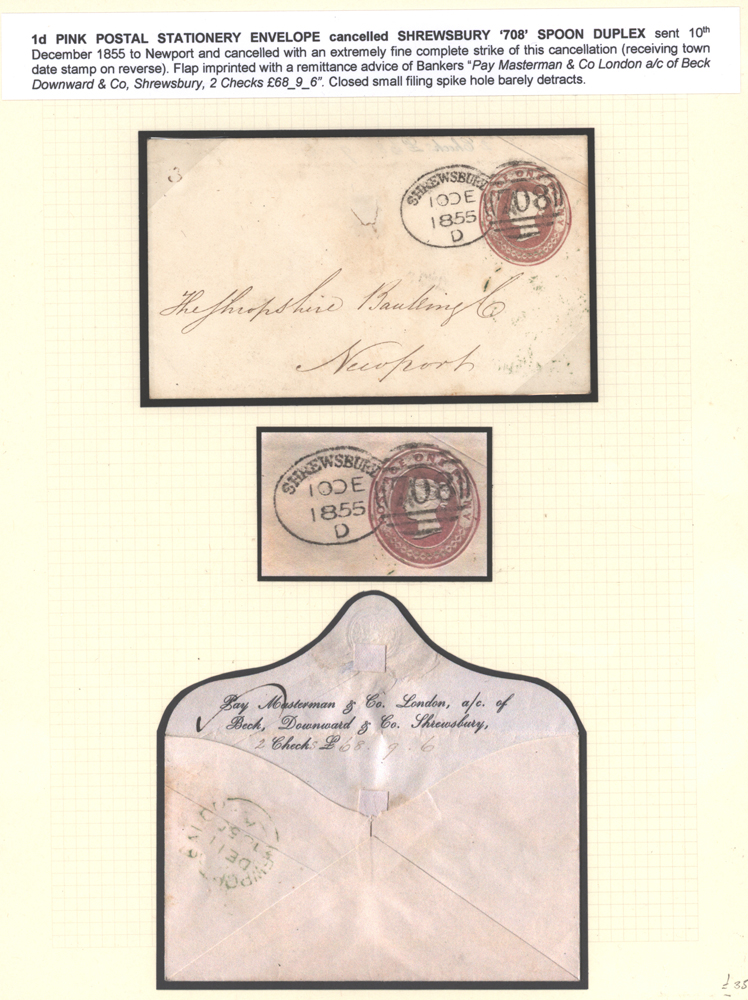 1d PINK POSTAL STATIONERY ENVELOPE cancelled SHREWSBURY '708' SPOON DUPLEX sent 10th
December 1855 to Newport and cancelled with an extremely fine complete strike of this cancellation (receiving town
date stamp on reverse). Flap imprinted with a remittance advice of Bankers "Pay Masterman & Co London a/c of Beck
Downward & Co, Shrewsbury, 2 Checks £68_9_6". Closed small filing spike hole barely detracts.
SHREWSBURY
10DE
1855
D
708
The Shropshire Banking Co
Newport
SHREWSBURY
10DE
1855
D
708
Pay Masterman & Co. London, a/c. of
Beck, Downward & Co. Shrewsbury,
2 Checks £68.9.6
NEWPORT
DE 11
£35